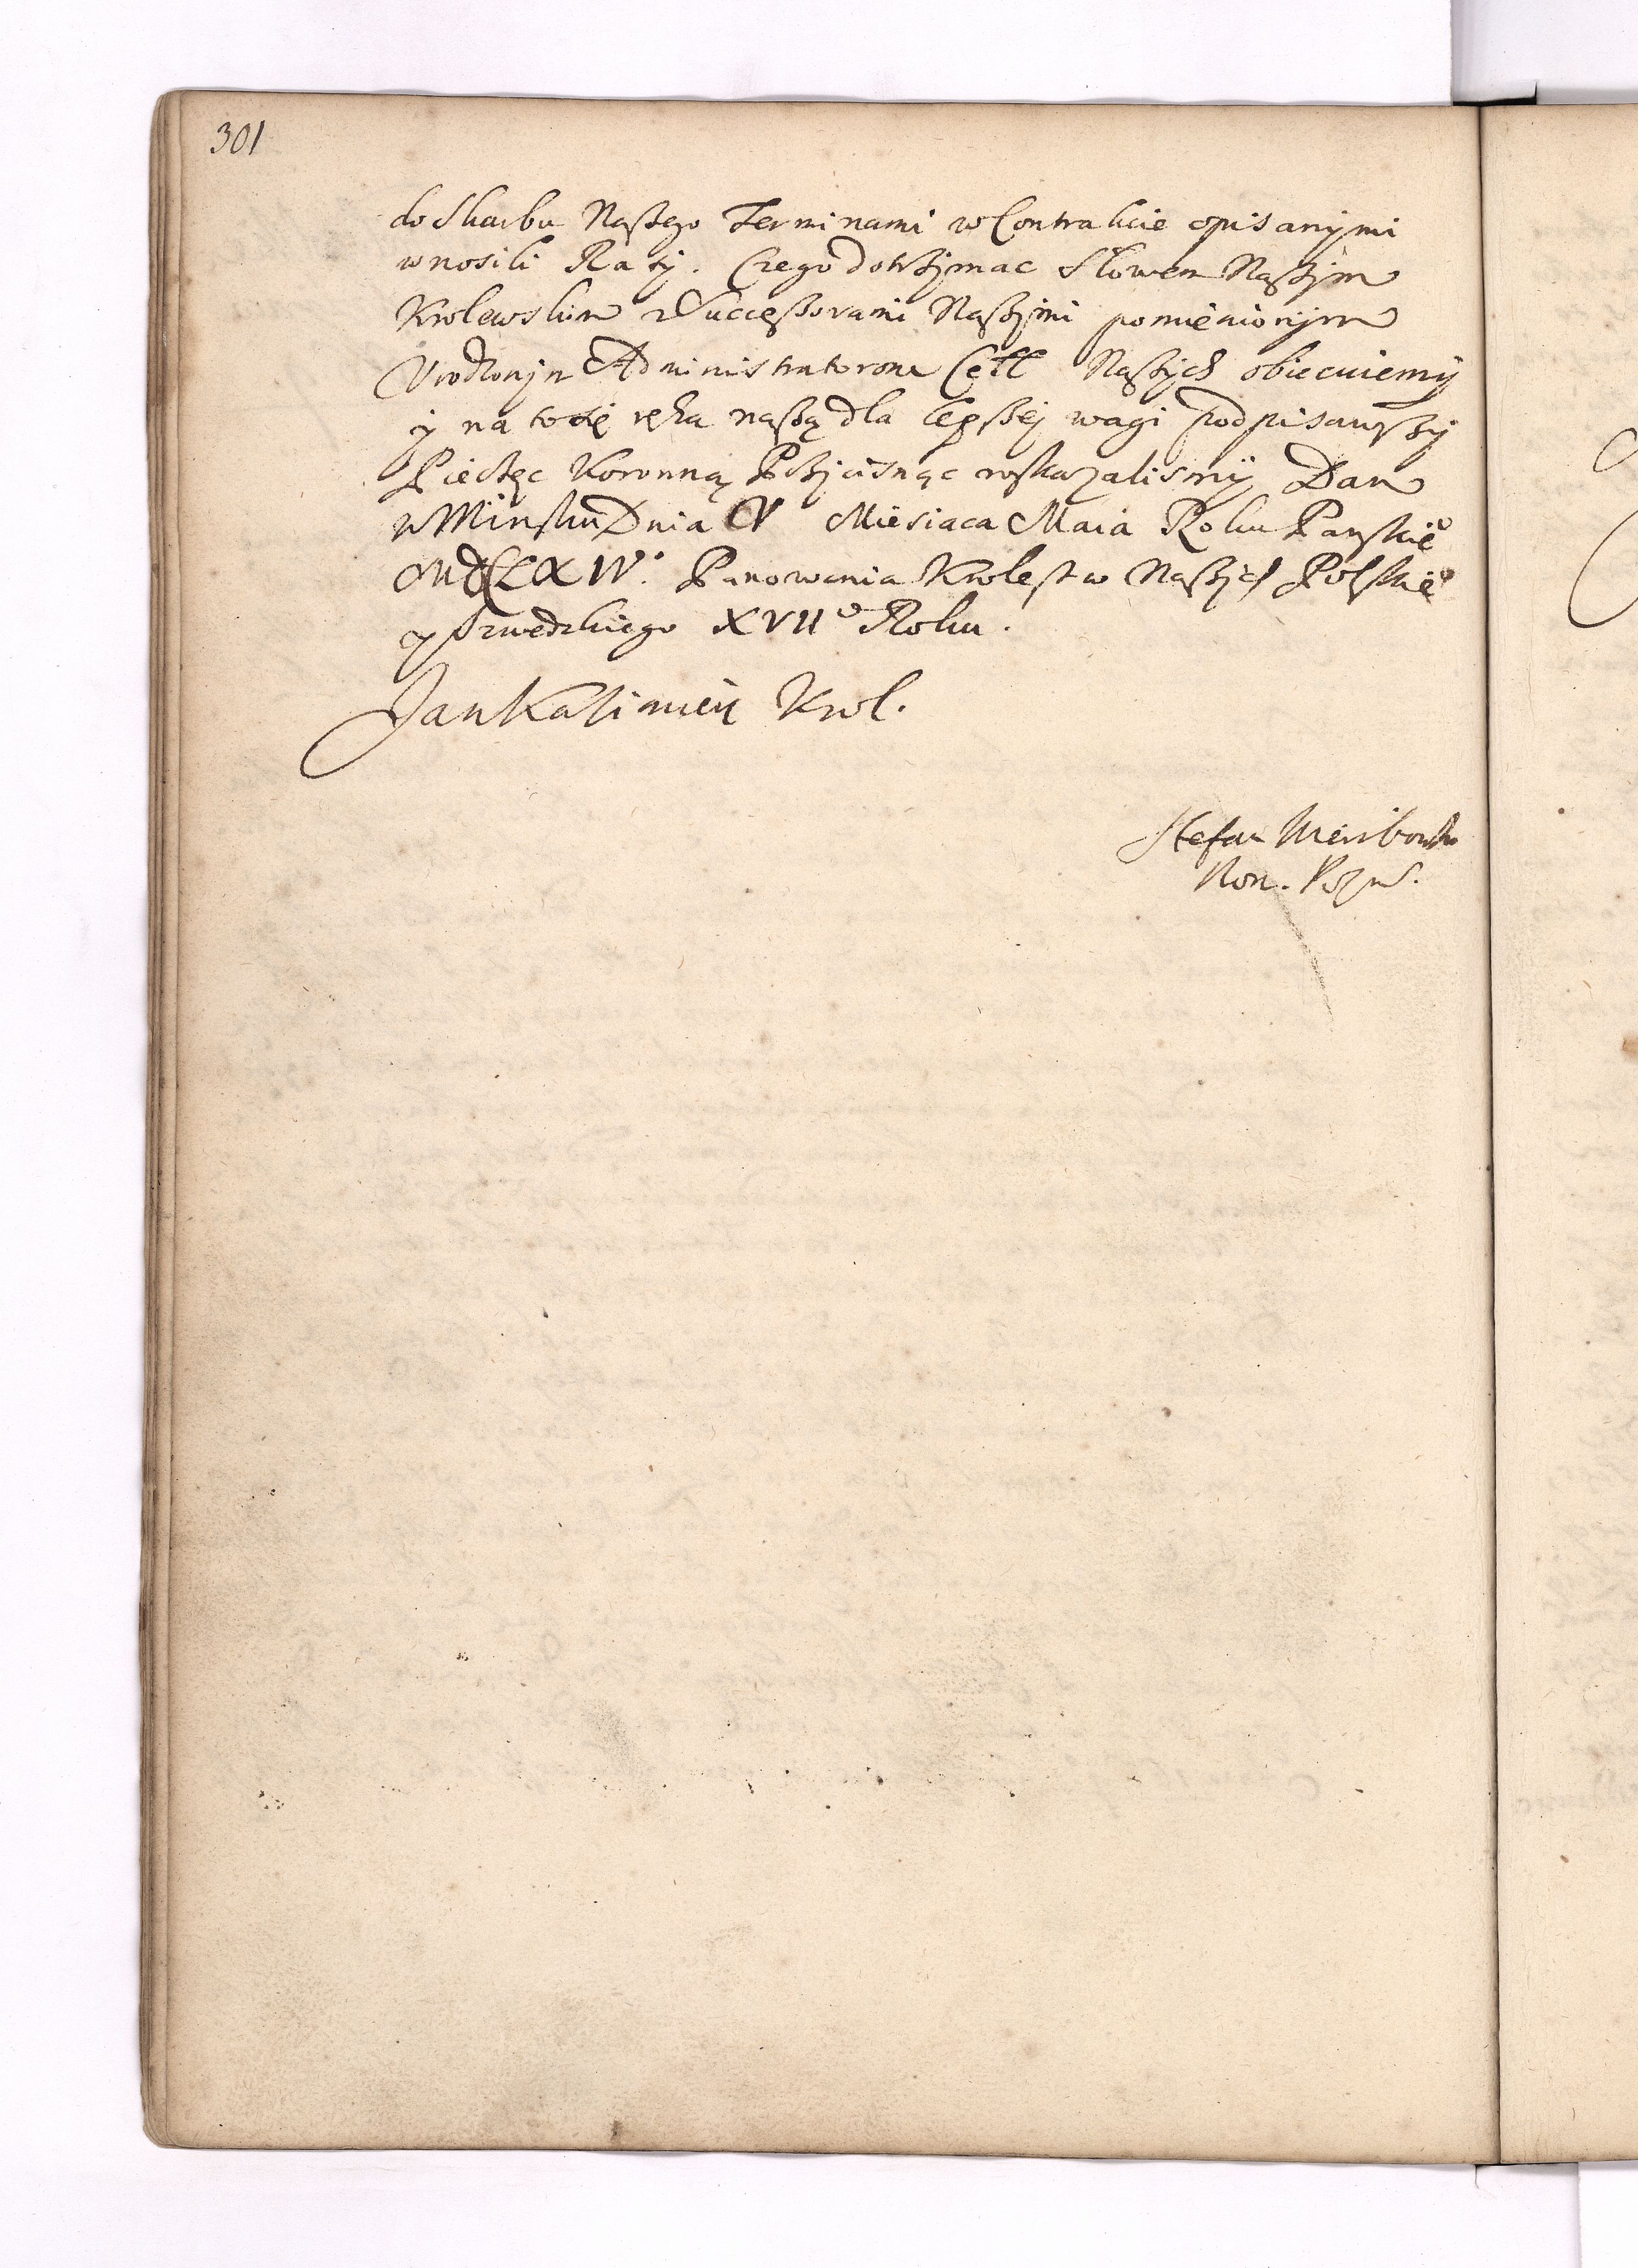 301
do Skarbu Naßego Terminami w Contrakcie opisanymi
wnosili Raty. Czego dotrzymac Słowem Naßym
Krolewskim z Successorami Naßymi pomienionym
Urodzonym Administratorom Cełł Naßych obiecuiemy
y na to się ręką naßą dla lepßej wagi podpisawßy
Pieczęc Koronną Przycisnąc roskazalismy Dan
w Minsku Dnia V Miesiaca Maia Roku Panskieo
MDCLXIV. Panowania Krolestw Naßych Polskieo
y Szwedzkiego XVII Roku.
Jan Kazimierz Krol.
Stefan